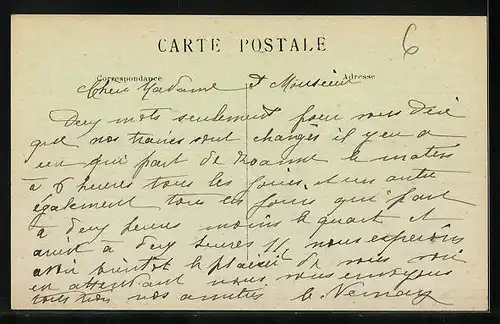 6
CARTE POSTALE
Correspondance Adresse
Cher Madame et Monsieur
Deux mots seulement pour vous dire
que nos traines sont changés il y en a
un qui part de Roanne le matin
à 6 heures tous les jours, et un autre
également tous les jours qui part
a deux heures moins le quart et
arrit à deux heures 1/2 nous espérons
avoir bientot le plaisir de vous voir
en attendant nous vous envoyons
nos amitiés